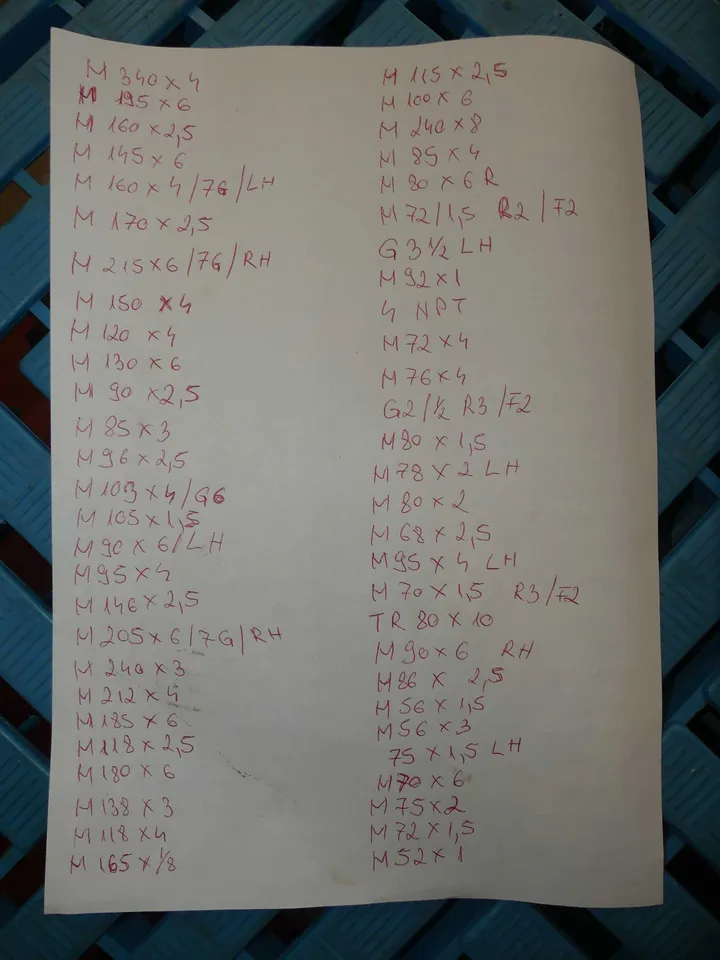 M 340 x 4
M 195 x 6
M 160 x 2,5
M 145 x 6
M 160 x 4 / 7G / LH
M 170 x 2,5
M 215 x 6 / 7G / RH
M 150 x 4
M 120 x 4
M 130 x 6
M 90 x 2,5
M 85 x 3
M 96 x 2,5
M 103 x 4 / G6
M 105 x 1,5
M 90 x 6 / LH
M 95 x 4
M 146 x 2,5
M 205 x 6 / 7G / RH
M 240 x 3
M 212 x 4
M 185 x 6
M 118 x 2,5
M 180 x 6
M 138 x 3
M 118 x 4
M 165 x 1/8
M 115 x 2,5
M 100 x 6
M 240 x 8
M 85 x 4
M 80 x 6 R
M 72 / 1,5 R2 / F2
G 3 1/2 LH
M 92 x 1
4 NPT
M 72 x 4
M 76 x 4
G2 / 1/2 R3 / F2
M 80 x 1,5
M 78 x 2 LH
M 80 x 2
M 68 x 2,5
M 95 x 4 LH
M 70 x 1,5 R3 / F2
TR 80 x 10
M 90 x 6 RH
M 86 x 2,5
M 56 x 1,5
M 56 x 3
75 x 1,5 LH
M 70 x 6
M 75 x 2
M 72 x 1,5
M 52 x 1